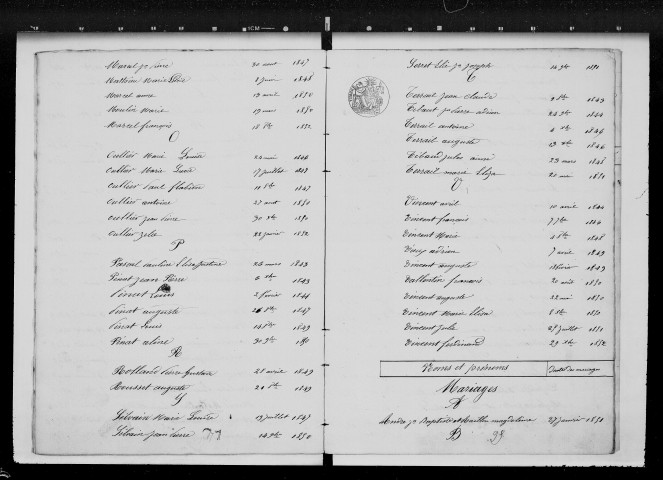 Maral j^n pierre 30 aout 1847
Mathieu Marie 8 juin 1848
Marcel anne 13 avril 1850
Moulin Marie 19 mars 1850
Marcel françois 18 8bre 1852
O
Oullier Marie Louise 24 mai 1846
Oullier Marie Lucie 17 juillet 1847
Oullier Paul 11 8bre 1847
Oullier antoine 27 aout 1850
Oullier jean pierre 30 1850
Oullier zelie 22 janvier 1852
P
Pascal pauline 26 mars 1843
Pinat jean Pierre 6 1843
Pinat Louis 2 février 1844
Pinat auguste 26 8bre 1847
Pinat Louis 14 8bre 1849
Pinat celine 30 9bre 1851
R
Rolland pierre Gustave 28 avril 1849
Rousset auguste 21 8bre 1849
S
Silvain Marie Louise 13 juillet 1847
Silvain jean pierre 14 9bre 1850
Serret joseph 14 9bre 1851
T
Terrail jean claude 1843
Tibaut pierre adrien 24 9bre 1844
Terrail antoine 1844
Terrail auguste 13 1846
Tibaud jules aimé 23 mars 1848
Terrail marie Eliza 20 mai 1851
V
Vincent avril 10 avril 1844
Vincent françois 7 7bre 1846
Vincent Marie 4 8bre 1848
Vieux adrien 7 avril 1849
Vincent auguste 18 février 1849
Vallentin françois 20 aout 1850
Vincent auguste 22 mai 1850
Vincent Marie Eliza 8 1851
Vincent jule 27 juillet 1851
Vincent ferdinand 29 1852
Noms et prénoms Dates du mariage
Mariages
A
André j^n Baptiste et magdeleine 27 janvier 1851
B